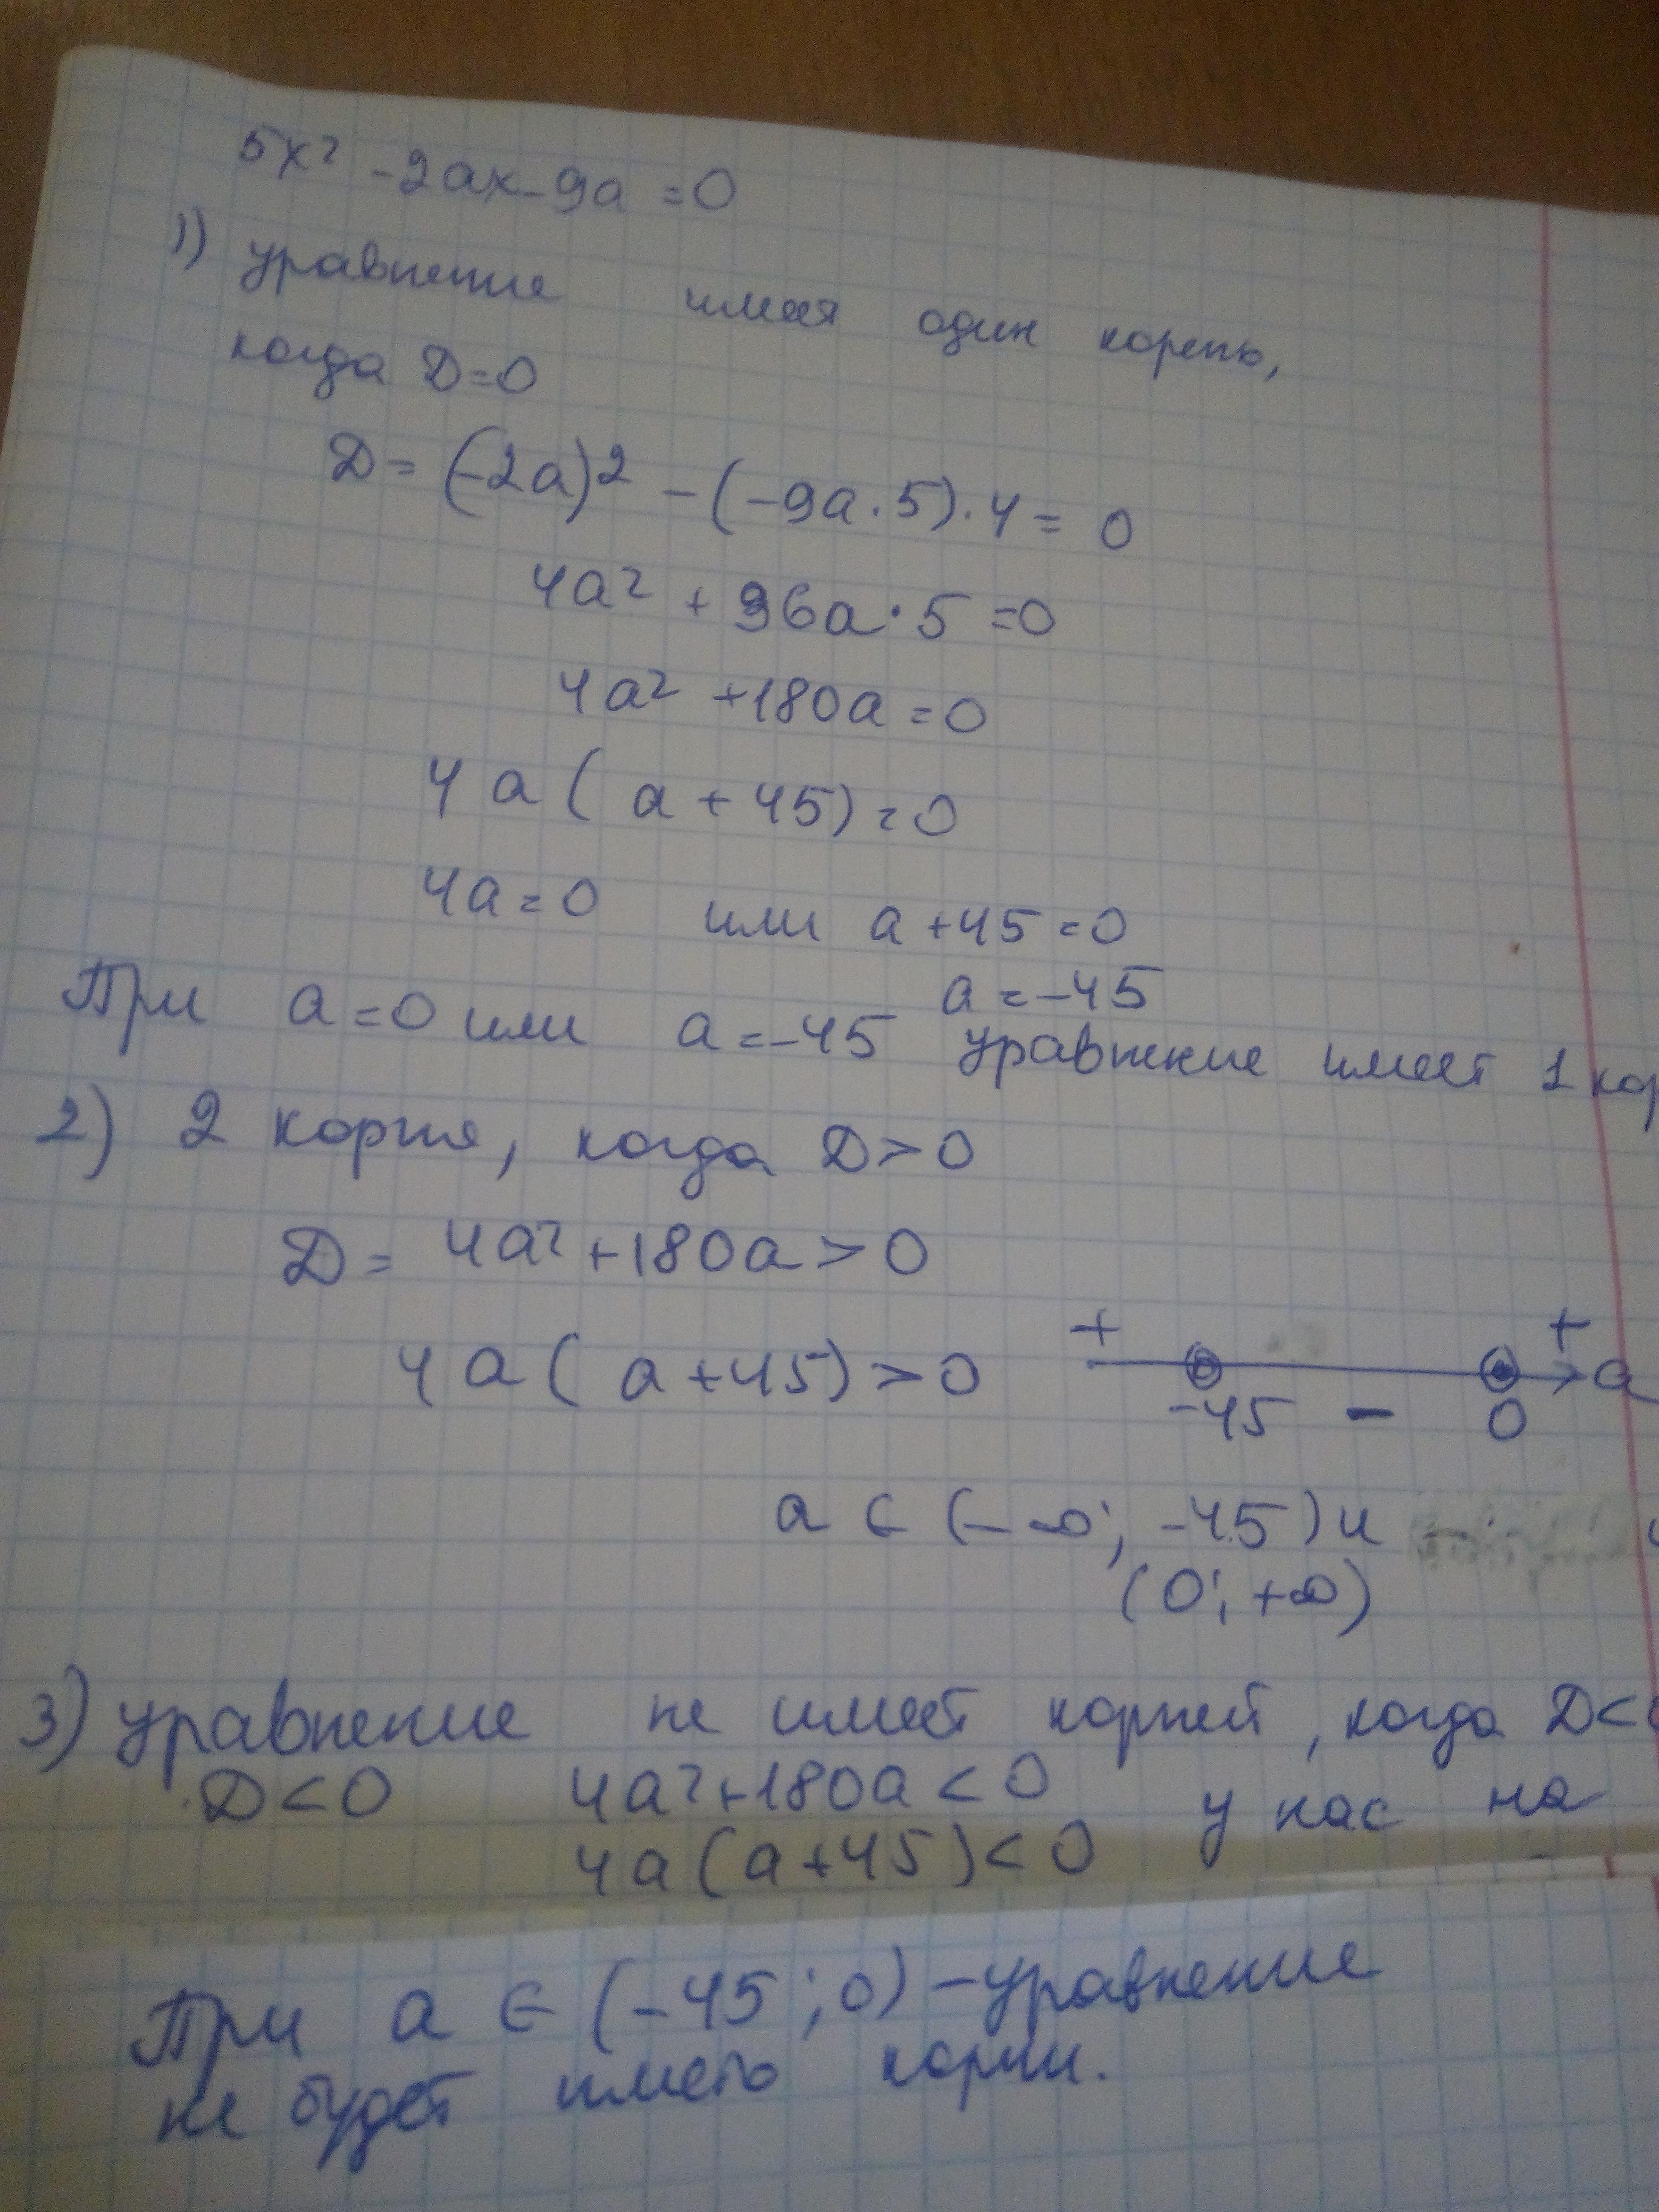 5x² - 2ax - 9a = 0
1) уравнение имея один корень,
когда D=0
D = (-2a)² - (-9a·5)·4 = 0
4a² + 36a·5 = 0
4a² + 180a = 0
4a(a + 45) = 0
4a = 0 или a + 45 = 0
a = -45
При a = 0 или a = -45 уравнение имеет 1 кор
2) 2 корня, когда D > 0
D = 4a² + 180a > 0
4a(a + 45) > 0
+ + a
-45 - 0
a ∈ (-∞; -45) и
(0; +∞)
3) уравнение не имеет корней, когда D < 0
D < 0 4a² + 180a < 0 у нас на
4a(a + 45) < 0
При a ∈ (-45; 0) - уравнение
не будет иметь корни.